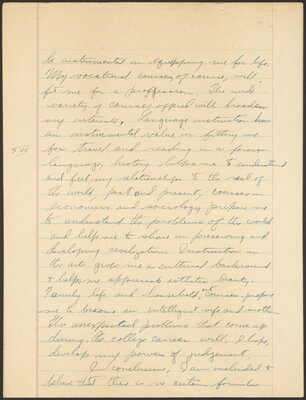 be instrumental in equipping me for life.
My vocational courses, of course, will
fit me for a proffession. The wide
variety of courses offered will broaden
my interests. Language instruction has
an instrumental value in fitting me
for travel and reading in a foreign
language, history helps me to understand
and feel my relationships to the rest of
the world, past and present, courses in
economics and sociology prepare me
to understand the problems of the world
and help me to share in preserving and
developing civilization. Instruction in
the arts gives me a cultural background
& helps me appreciate esthetic beauty.
Family life and household courses prepare
me to become an intelligent wife and mother.
The unexpected problems that come up
during the college career will, I hope,
develop my powers of judgement.
In conclusion, I am inclined to
believe that there is no certain formula